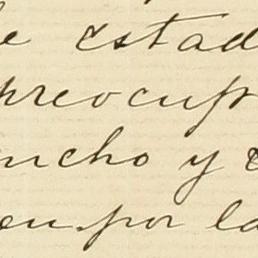 e estad
preocup
ncho y
en por la